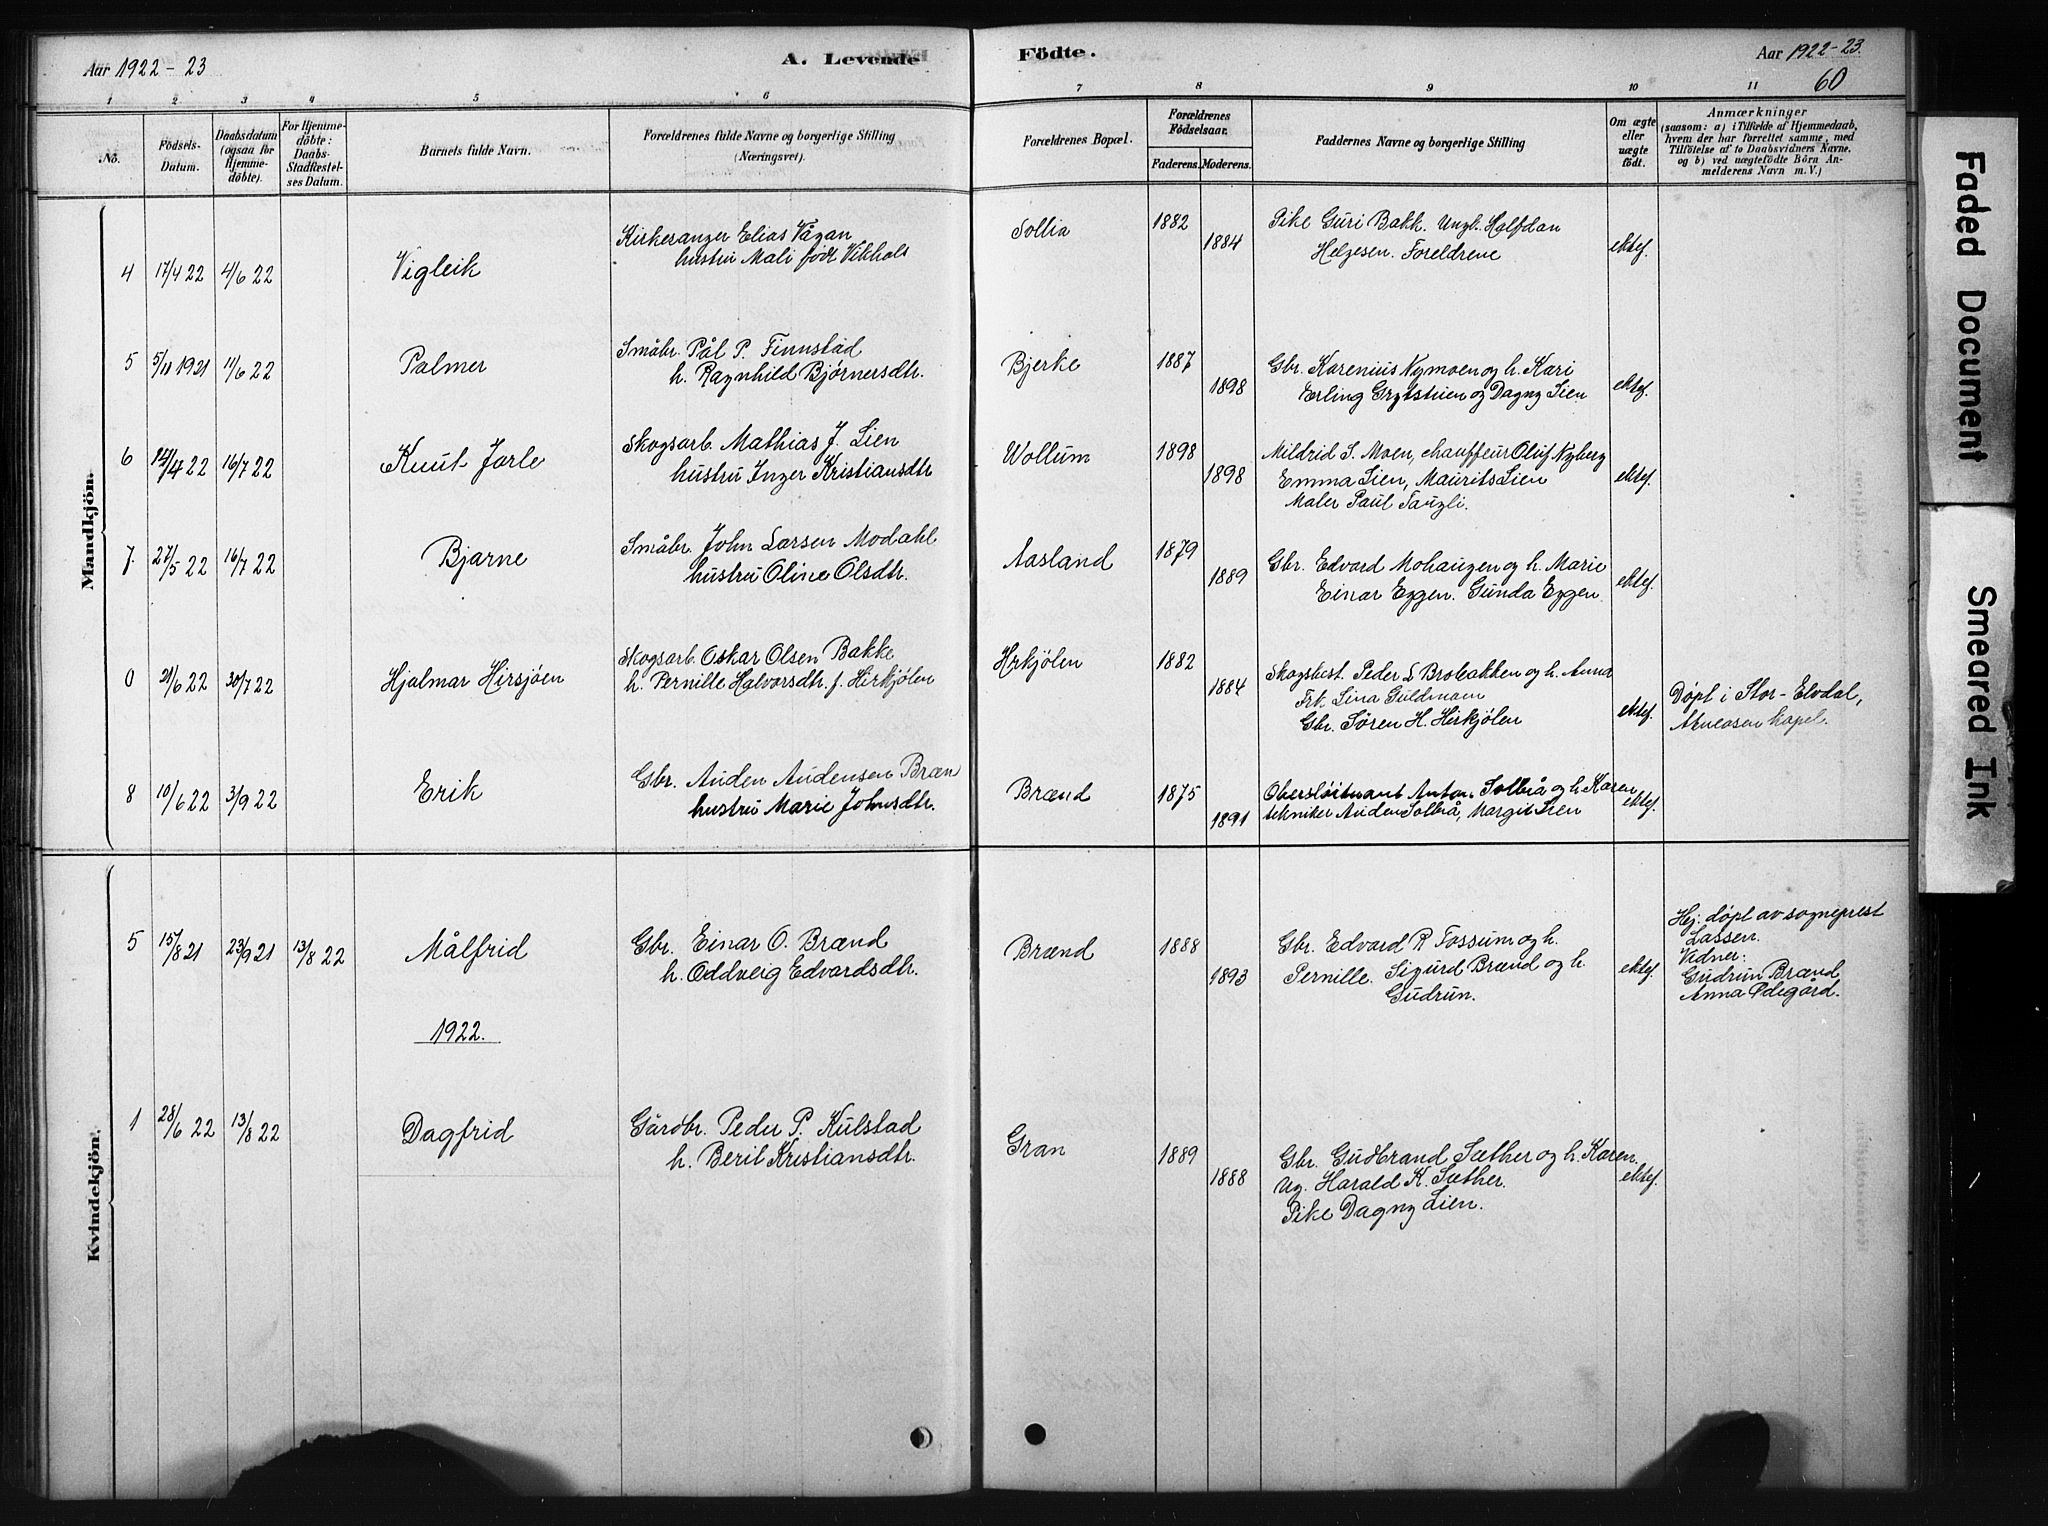 Aar 1922-23
A. Levende
Födte.
Aar 1922-23.
60
1 2 3 4 5 6 7 8 9 10 11
No.
Födsels-
Datum.
Daabsdatum
(ogsaa for
Hjemme-
döbte).
For Hjemme-
döbte:
Daabs-
Stadfæstel-
ses Datum.
Barnets fulde Navn.
Forældrenes fulde Navne og borgerlige Stilling
(Næringsvei).
Forældrenes Bopæl.
Forældrenes
Födselsaar.
Faderens. Moderens.
Faddernes Navne og borgerlige Stilling
Om ægte
eller
uægte
født.
Anmærkninger
(saasom: a) i Tilfælde af Hjemmedaab,
hvem der har forrettet samme, med
Tilföielse af to Daabsvidners Navne.
og b) ved uægtefödte Börn An-
melderens Navn m.V.)
Mandkjön.
4 17/4 22 4/6 22 Vigleik
Kirkesanger Elias Vågan
hustru Mali født Vikhals
Sollia 1882 1884
Pike Guri Bakk. Ungk. Halfdan
Helgesen. Foreldrene
ektef.
5 5/11 1921 11/6 22 Palmer
Småbr. Pål P. Finnstad
h. Ragnhild Bjørnersdtr.
Bjerke 1887 1898
Gbr. Karenius Nymoen og h. Kari
Erling Grytstuen og Dagny Lien
ektef.
6 14/4 22 16/7 22 Knut Jarle
Skogsarb. Mathias J. Lien
hustru Inger Kristiansdtr
Wollum 1898 1898
Mildrid S. Moen, chauffeur Oluf Nyberg
Emma Lien, Maurits Lien
Maler Paul Taugli.
ektef.
7. 27/5 22 16/7 22 Bjarne
Småbr. John Larsen Modahl
hustru Oline Olsdtr.
Aasland 1879 1889
Gbr. Edvard Mohaugen og h. Marie
Einar Eggen. Gunda Eggen.
ektef.
0 21/6 22 30/7 22 Hjalmar Hirsjøen
Skogsarb. Oskar Olsen Bakke
h. Pernille Halvorsdtr. f. Hirkjølen
Hrkjølen 1882 1884
Skogsbest. Peder L Brobakken og h. Anna
Frk. Lina Guldmann
Gbr. Søren H. Hirkjølen
ektef.
Døpt i Stor-Elvdal,
kapel.
8 10/6 22 3/9 22 Erik
Gbr. Auden Audensen Bræn
hustru Marie Johnsdtr.
Brænd 1875 1891
Oberstløitnant Anton Solbrå og h. Karen
tekniker Auden Solbrå, Margit Lien
ektef.
Kvindekjön.
5 15/8 21 23/9 21 13/8 22 Målfrid
Gbr. Einar O. Brænd
h. Oddveig Edvardsdtr.
Brænd 1888 1893
Gbr. Edvard R Fossum og h.
Pernille. Sigurd Brænd og h.
Gudrun.
ektef.
Hej. døpt av sogneprest
Lassen.
Vidner:
Gudrun Brænd
Anna Ødegård.
1922.
1 28/6 22 13/8 22 Dagfrid
Gårdbr. Peder P. Kulstad
h. Berit Kristiansdtr.
Gran 1889 1888
Gbr. Gudbrand Sæther og h. Karen.
Ug. Harald K. Sæther.
Pike Dagny Lien.
ektef.
Faded Document
Smeared Ink